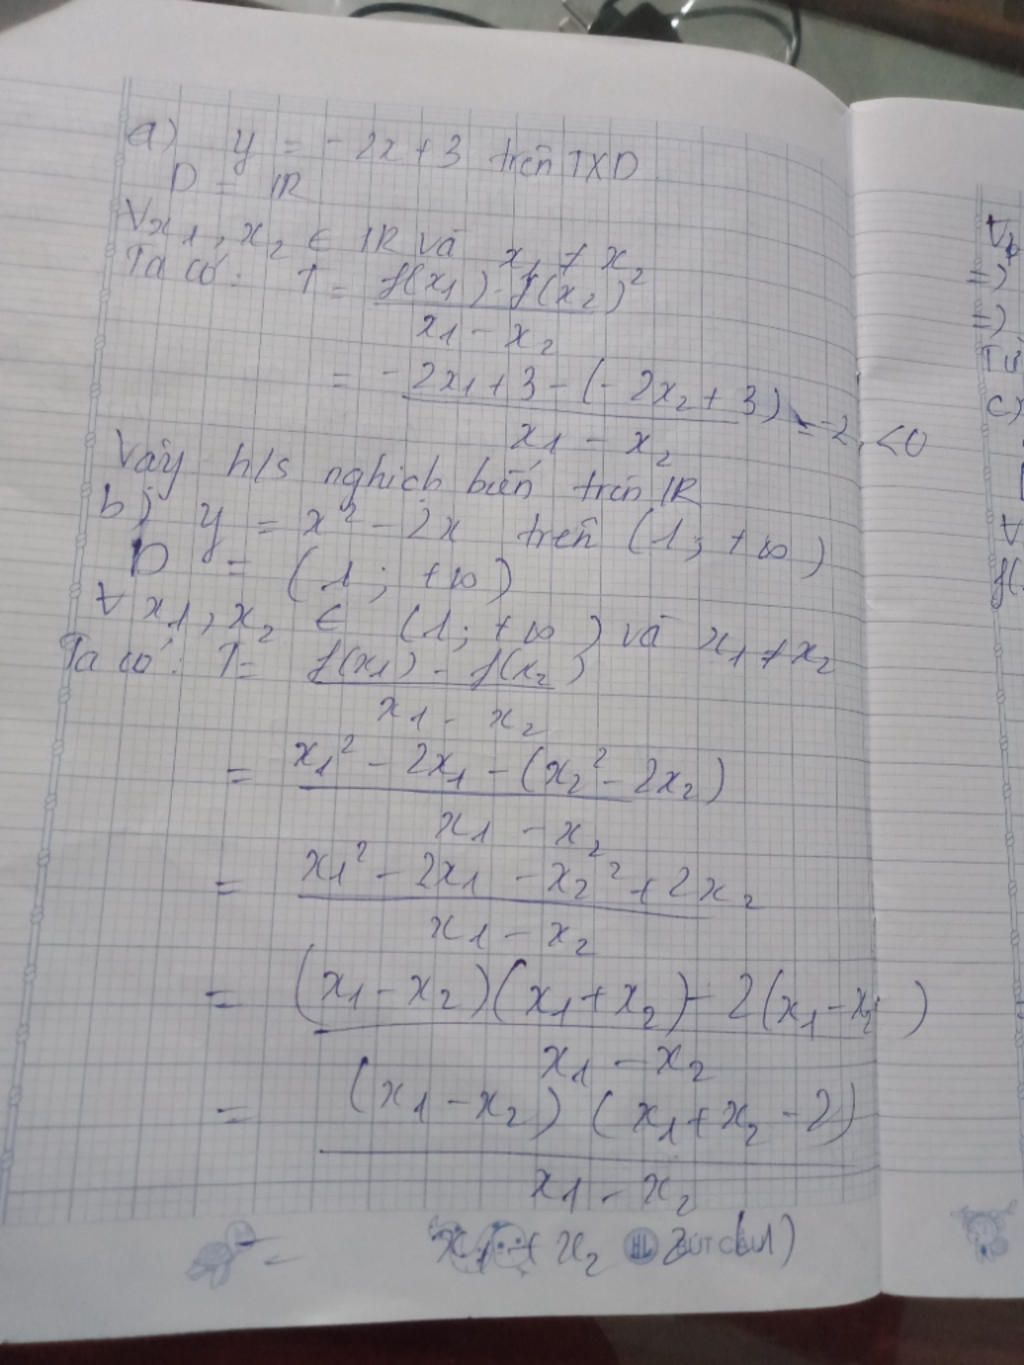 a) y = -2x + 3 trên TXD
D = IR
∀x1, x2 ∈ IR và x1 ≠ x2
Ta có: T = f(x1) - f(x2)
x1 - x2
= -2x1 + 3 - (-2x2 + 3) = -2 < 0
x1 - x2
Vậy h/s nghịch biến trên IR
b) y = x² - 2x trên (1; +∞)
D = (1; +∞)
∀x1, x2 ∈ (1; +∞) và x1 ≠ x2
Ta có: T = f(x1) - f(x2)
x1 - x2
= x1² - 2x1 - (x2² - 2x2)
x1 - x2
= x1² - 2x1 - x2² + 2x2
x1 - x2
= (x1 - x2)(x1 + x2) - 2(x1 - x2)
x1 - x2
= (x1 - x2)(x1 + x2 - 2)
x1 - x2
= x1 + x2 2 (1)